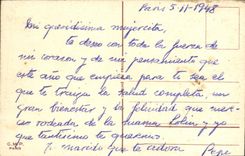 Paris 5-11-1948
Mi queridisima mujercita,
te deseo con toda la fuerza de
mi corazon y de mi pensamiento que
este año que empieza para ti sea el
que te traiga la salud completa, un
gran bienestar y la felicidad que mereces
rodeada de la mamá y yo
que tantisimo te queremos
Tu marido que te adora
Pepe